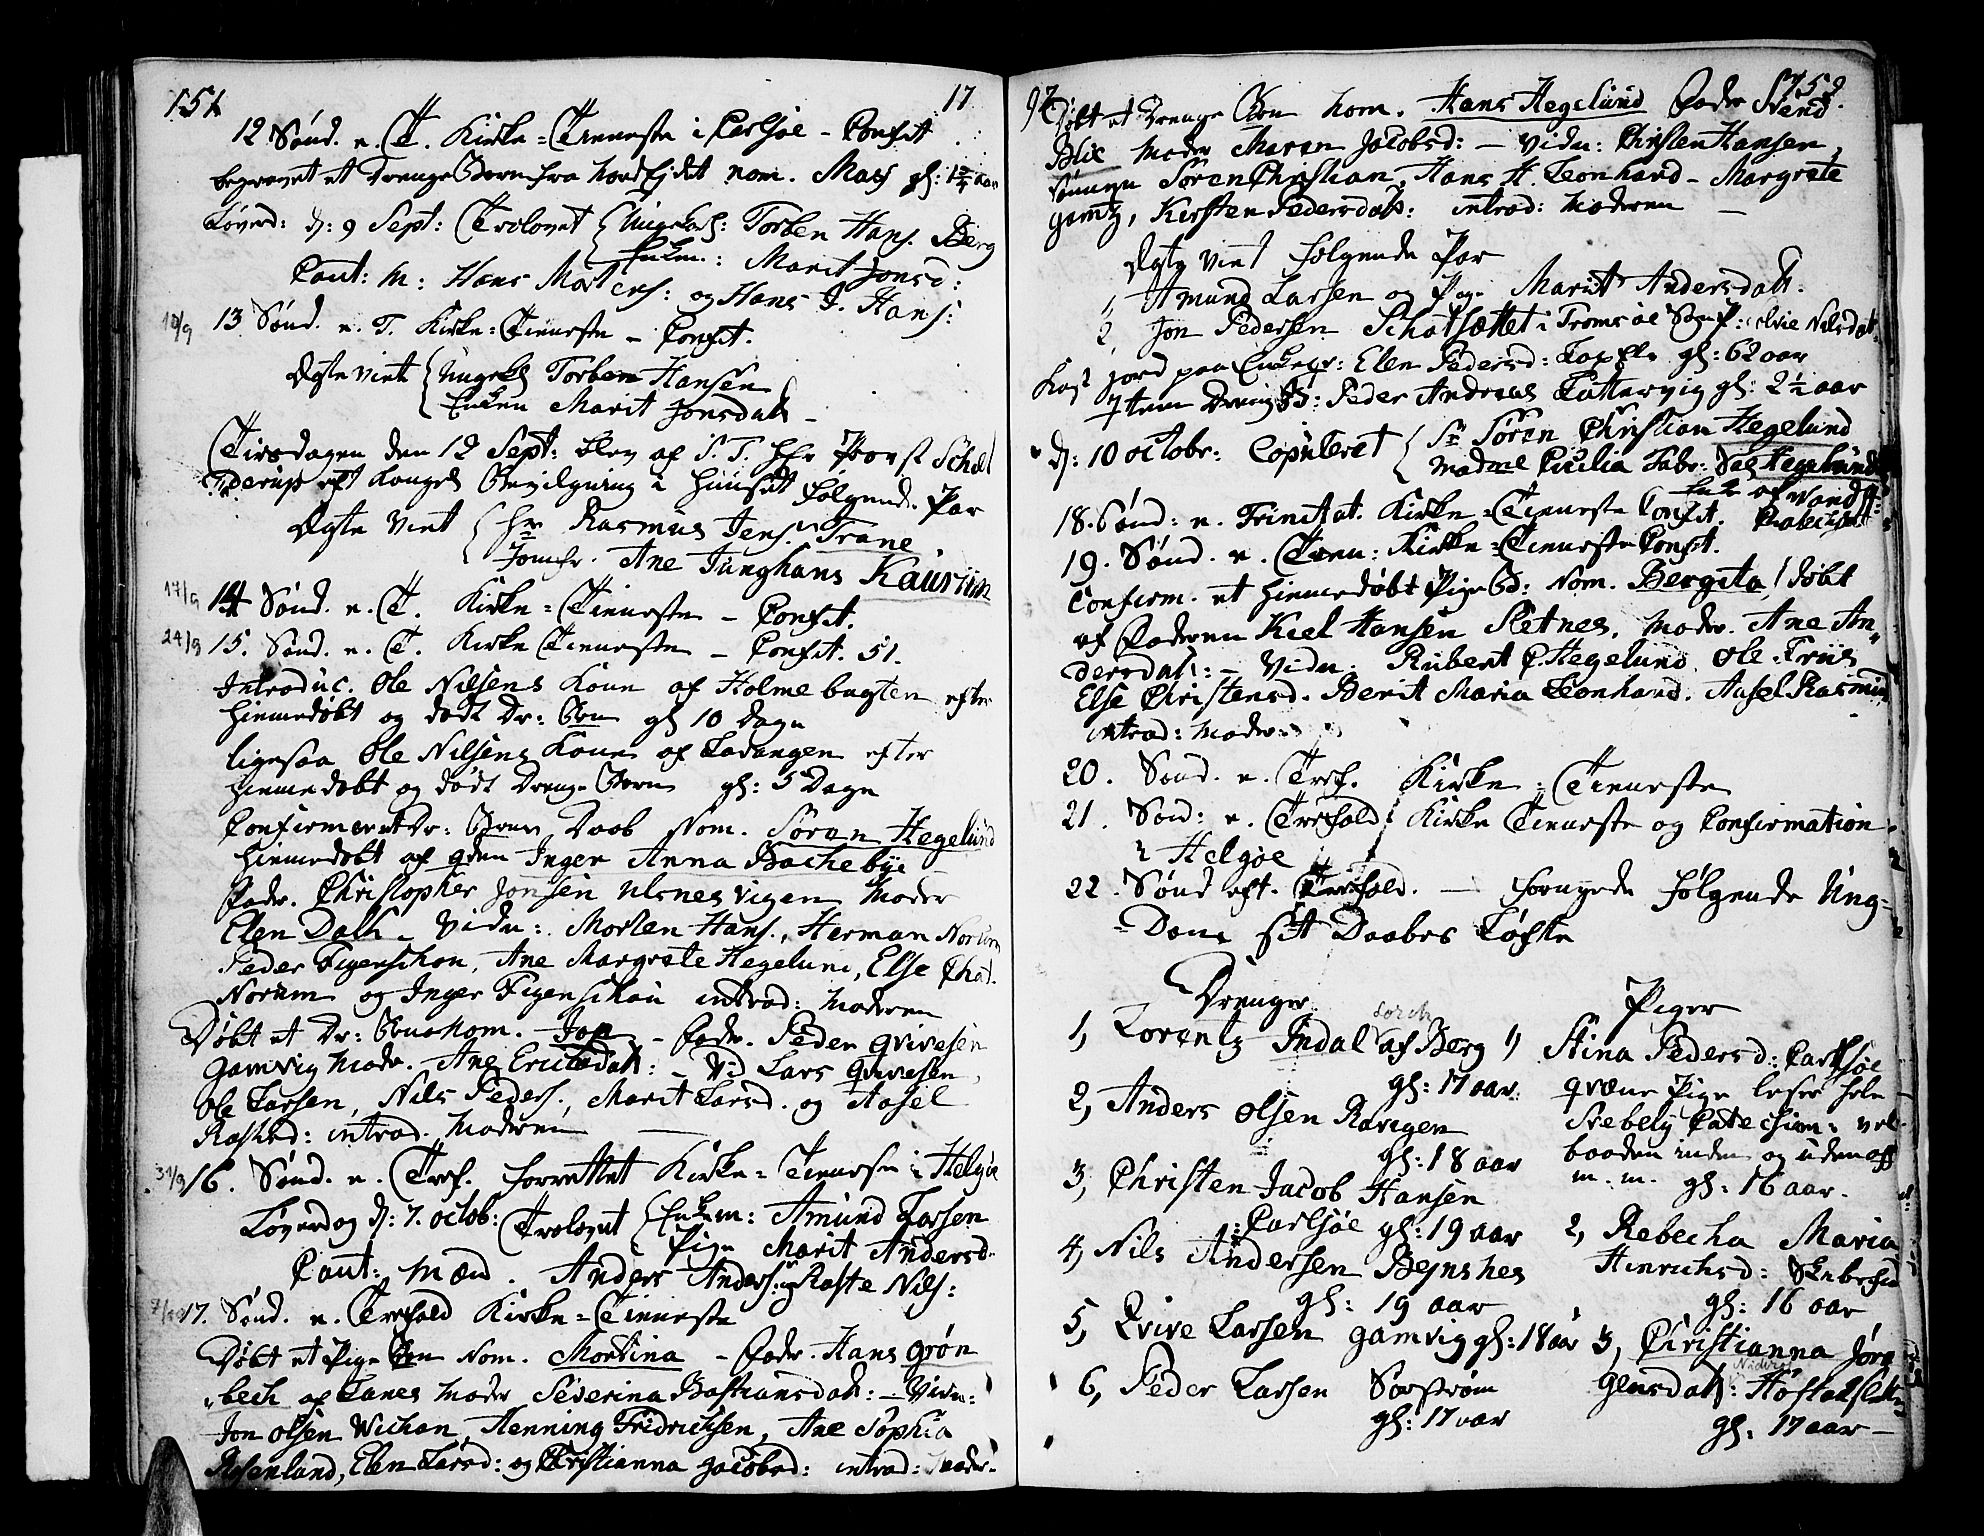 151
17
12 Sønd. e. T. Kirke-Tieneste i Carlsøe - Confit.
begravet et Drenge Barn fra Nordfjdet nom. Mass gl: 1 3/4 aar
Løverd: d: 9 Sept: Trolovet Ungekarl: Torben Hans. Berg
Enken: Marit Jonsd:
Caut: M: Hans Mortens: og Hans J. Hans:
10/9 13 Sønd. e. T. Kirke-Tieneste - Confit.
Ægte viet Ungekl Torben Hansen
Enken Marit Jonsdatt -
Tirsdagen den 12 Sept: blev af S. T. Hr Provst Schel
derup eft Konge Bevilgning i Huuset følgende Par
Ægte Viet Hr Rasmus Jens. Trane
Jomfr. Ane Junghans Kaurin
17/9 14 Sønd. e. T. Kirke-Tieneste - Confit.
24/9 15. Sønd. e. T. Kirke Tieneste - Confit. 51.
Introduc. Ole Nilsens Kone af Holmebugten efter
hiemmedøbt og dødt Dr: Barn gl 10 Dage
ligesaa Ole Nilsens Kone af Ladangen efter
hiemmedøbt og dødt Drenge Barn gl: 5 Dage
Confirmeret Dr: Barns Daab Nom. Søren Hegelund
hiemmedøbt af Inger Anna Bachebye
Fader. Christopher Jonsen Ulsnesvigen Moder
Elen Dath - Vidn: Morten Hans., Herman Norum
Peder Figenschou, Ane Margrete Hegelund, Else Chat.
Norum og Inger Figenschau introd: Moderen
Døbt et Dr: Barn nom. Jon - Fader. Peder Qvivesen
Gamvig Moder. Ane Ericsdatt: - Vid Lars Qvivesen,
Ole Larsen, Nils Peders., Marit Larsd. og Aasel
Rasked: introd. Moderen
31/9 16. Sønd. e. Tref. forrettet Kirke-Tieneste i Helgøe
Løverdag d: 7. octob: Trolovet Enkem: Amund Larsen
Pige Marit Andersd.
Caut: Mænd. Anders Anders. og Raste Nils:
7/10 17. Sønd. e. Trefold Kirke-Tieneste
Døbt et Pige Barn Nom. Mortina - Fader. Hans Grøn
bech af Lanes Moder Severina Bastiansdatt: - Vidn:
Jon Olsen Wichan, Henning Fridrichsen, Ane Sophia
Rosenland, Elen Larsd: og Christianna Jacobsd: introd: Moder.
97
152
Døbt et Drenge Barn nom. Hans Hegelund Fader Svend
Blix Moder Maren Jacobsd: - Vidn: Christen Hansen,
Søren Christian, Hans H. Leonhard - Margrete
Gamtz, Kirsten Pedersdatt: introd: Moderen -
Ægte viet følgende Par
1, Amund Larsen og Pige Marit Andersdatt.
2, Jon Pedersen Schatsættet i Tromsøe Sogn P: Nilsdat.
Kast jord paa Enkepr: Elen Pedersd: gl: 62 aar
Item Dreng Bd: Peder Andreas Tuttervig gl: 2½ aar
d: 10 octobr: Copuleret Sr Søren Christian Hegelund
Madme Cicilia Fabr: Sal Hegelund
Enke af Vand
18. Sønd: e. Trinitat. Kirke-Tieneste Confit.
19. Sønd. e. Treen: Kirke-Tieneste Confit.
Confirm. et hiemmedøbt Pige Bd: Nom. Bergita, døbt
af Faderen Kiel Hansen Sletnes, Moder. Ane An
dersdatt: - Vidn: Rubert C. Hegelund Ole Friis
Else Christensd. Berit Maria Leonhard. Aasel Rasmus
introd: Moder.
20. Sønd. e. Tref. Kirke-Tieneste
21. Sønd: e. Trefold Kirke Tieneste og Confirmation
i Helgøe
22. Sønd eft. Trefold. - fornyede følgende Ung-
Dom sit Daabes Løfte
Drenger
1, Lorentz Indal af Berg
gl: 17 aar.
2, Anders Olsen Ravigen
gl: 18 aar
3, Christen Jacob Hansen
Carlsøe gl: 19 aar
4, Nils Andersen Bejnshes
gl: 19 aar
5, Qvive Larsen Gamvig gl: 18 aar
6, Peder Larsen Sørstrøm
gl: 17 aar
Piger
1, Stina Pedersd: Carlsøe
qvæne Pige leser hele
Svebely Catechism: vel
baaden inden og uden aff
m. m. gl: 16 aar.
2, Rebecha Maria
Hinrichsd:
gl: 16 aar
3, Christianna Jørg
gensdatt:
gl: 17 aar -